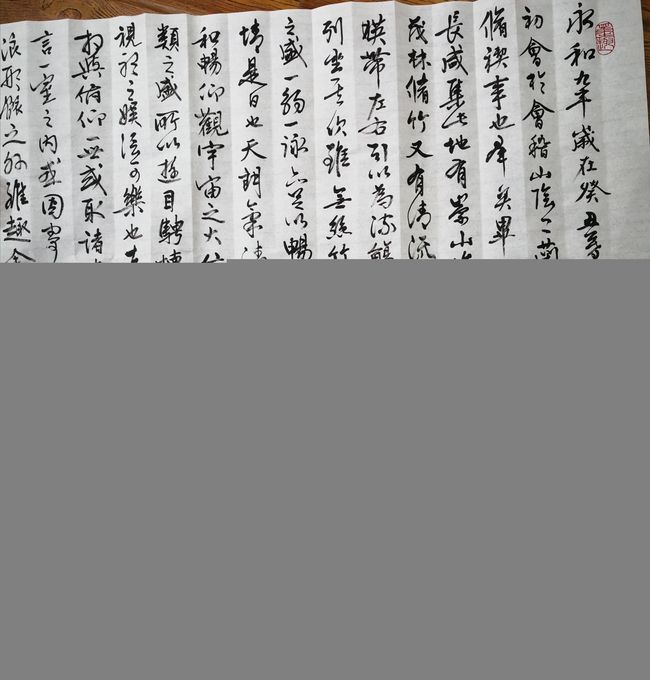 永和九年歲在癸丑暮
初會於會稽山陰之蘭
脩禊事也群賢畢
長咸集此地有崇山
茂林脩竹又有清流
暎帶左右引以為流觴
列坐其次雖無絲竹
之盛一觴一詠亦足以暢
情是日也天朗氣清
和暢仰觀宇宙之大
類之盛所以遊目騁
視聽之娛信可樂也夫
相與俯仰一世或取諸
言一室之內或因寄
浪形骸之外雖趣舍